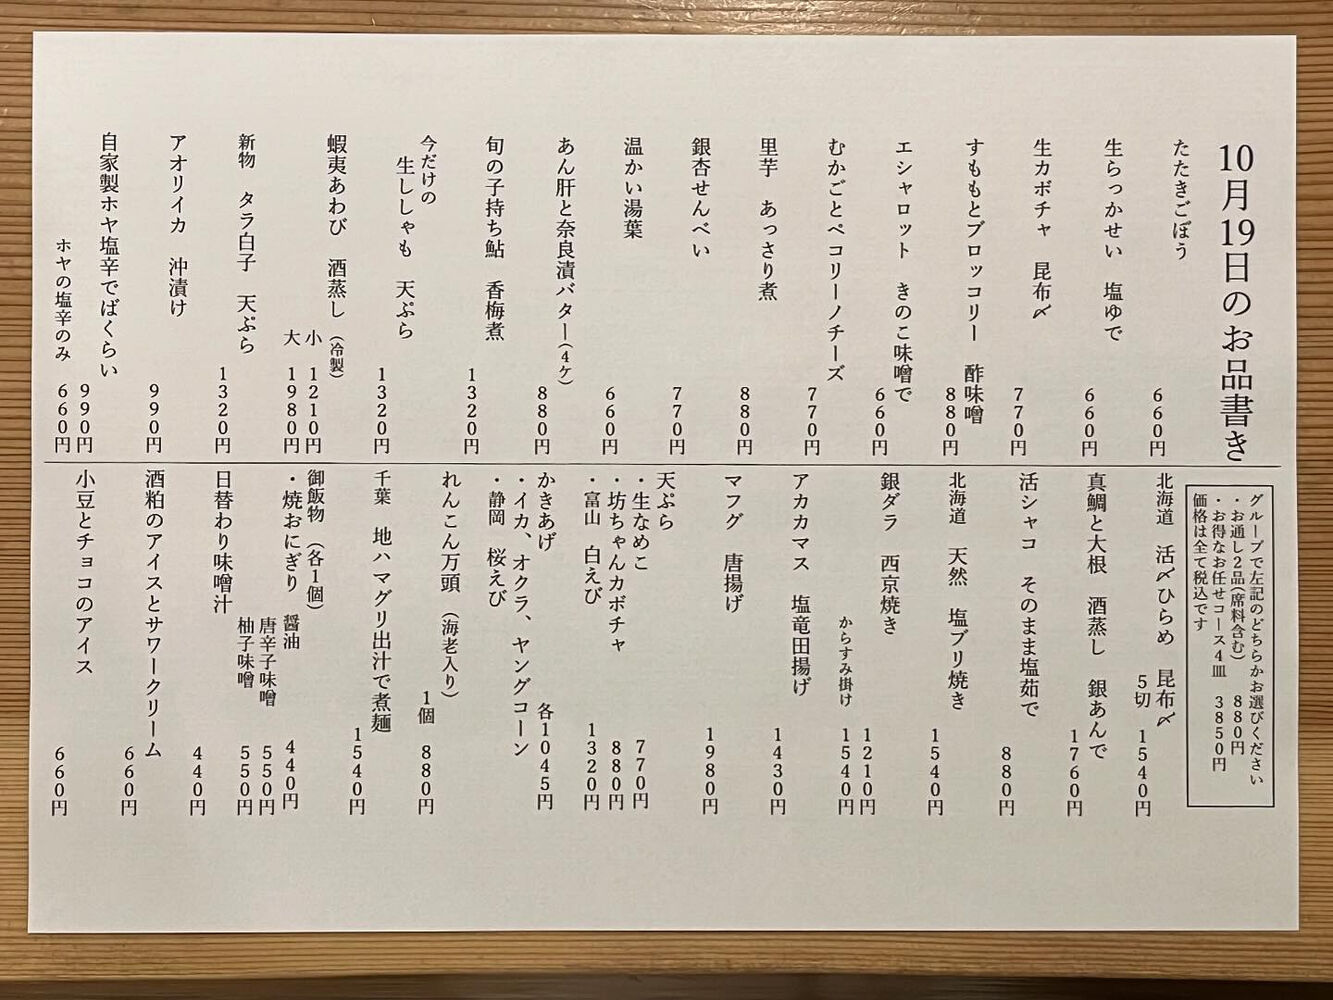 10月19日のお品書き
たたきごぼう
660円
生らっかせい 塩ゆで
660円
生カボチャ 昆布〆
770円
すももとブロッコリー 酢味噌
880円
エシャロット きのこ味噌で
660円
むかごとペコリーノチーズ
770円
里芋 あっさり煮
880円
銀杏せんべい
770円
温かい湯葉
660円
あん肝と奈良漬バター(4ケ)
880円
旬の子持ち鮎 香梅煮
1320円
今だけの
生ししゃも 天ぷら
1320円
蝦夷あわび 酒蒸し(冷製)
小 1210円
大 1980円
新物 タラ白子 天ぷら
1320円
アオリイカ 沖漬け
990円
自家製ホヤ塩辛でばくらい
990円
ホヤの塩辛のみ 660円
グループで左記のどちらかお選びください
・お通し2品(席料含む) 880円
・お得なお任せコース4皿 3850円
価格は全て税込です
北海道 活〆ひらめ 昆布〆
5切 1540円
真鯛と大根 酒蒸し 銀あんで
1760円
活シャコ そのまま塩茹で
880円
北海道 天然 塩ブリ焼き
1540円
銀ダラ 西京焼き
1210円
からすみ掛け 1540円
アカカマス 塩竜田揚げ
1430円
マフグ 唐揚げ
1980円
天ぷら
・生なめこ 770円
・坊ちゃんカボチャ 880円
・富山 白えび 1320円
かきあげ 各1045円
・イカ、オクラ、ヤングコーン
・静岡 桜えび
れんこん万頭 (海老入り)
1個 880円
千葉 地ハマグリ出汁で煮麺
1540円
御飯物 (各1個)
・焼おにぎり 醤油 440円
唐辛子味噌 550円
柚子味噌 550円
日替わり味噌汁
440円
酒粕のアイスとサワークリーム
660円
小豆とチョコのアイス
660円